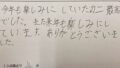 今年も楽しみにしていたので最高
でした。また来年も楽しみにし
ています。ありがとうございま
した。